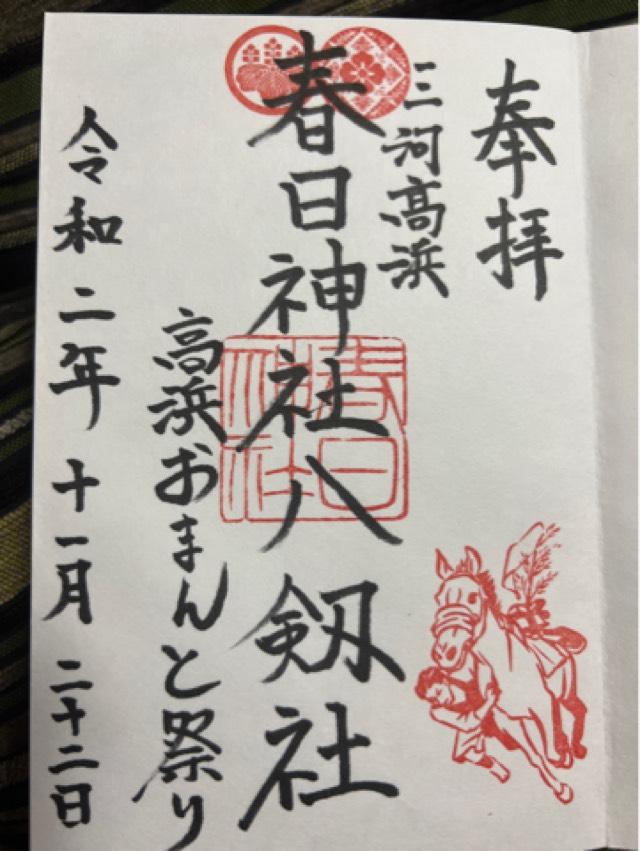 奉拝
三河高浜
春日神社八剱社
春日神社
高浜おまんと祭り
令和二年十一月二十二日